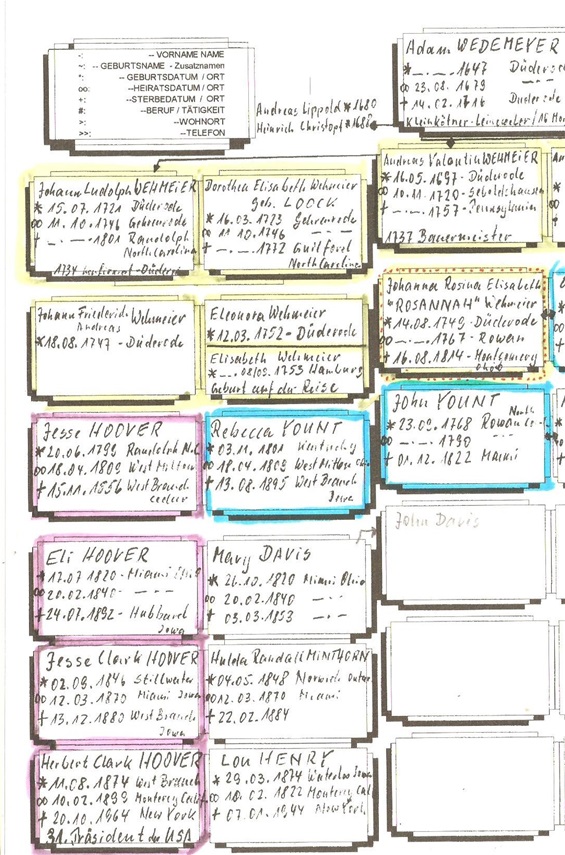 -: -- VORNAME NAME
~: -- GEBURTSNAME - Zusatznamen
*: -- GEBURTSDATUM / ORT
oo: --HEIRATSDATUM / ORT
+: --STERBEDATUM / ORT
#: --BERUF / TÄTIGKEIT
>: --WOHNORT
>>: --TELEFON
Andreas Lippold *1680
Heinrich Christoph *1688
Adam WEDEMEYER
* -.-.1647 Düderode
oo 23.08.1679
+ 14.02.1716 Düderode
Kleinkötner-Leineweber/16 Mor
Johann Ludolph WEHMEIER
* 15.07.1721 Düderode
oo 11.10.1746 Gehrenrode
+ -.-.1801 Randolph
North Carolina
1734 konfirmiert-Düderode
Dorothea Elisabeth Wehmeier
geb. LOOCK
* 16.03.1723 Gehrenrode
oo 11.10.1746 -.-
+ -.-.1772 Guilford
North Carolina
Andreas Valantin WEHMEIER
* 16.05.1697-Düderode
oo 10.11.1720-Seboldshausen
+ -.-.1757-Pennsylvanien
1737 Bauermeister
Johann Friederich Wehmeier
Andreas
* 18.08.1747 - Düderode
Eleonora Wehmeier
* 12.03.1752-Düderode
Elisabeth Wehmeier
* -.-08/09.1753 Hamburg
Geburt auf der Reise
Johanna Rosina Elisabeth
"ROSANNAH" Wehmeier
* 14.08.1749-Düderode
oo -.-.1767-Rowan
+ 16.08.1814-Montgomery
Ohio
Jesse HOOVER
* 20.06.1799 Randolph N.C
oo 18.04.1809 West Milton
+ 15.11.1556 West Branch
Rebecca YOUNT
* 03.11.1801 Kentucky
oo 18.04.1809 West Milton Ohio
+ 13.08.1895 West Branch
Iowa
John YOUNT
* 23.09.1768 Rowan North
oo -.-.1790
+ 01.12.1822 Miami
Eli HOOVER
* 17.07.1820-Miami Ohio
oo 20.02.1840 -.-
+ 24.07.1892-Hubbard
Iowa
Mary DAVIS
* 26.10.1820 Miami Ohio
oo 20.02.1840 -.-
+ 03.03.1853
John Davis
Jesse Clark HOOVER
* 02.09.1846 Stillwater
oo 12.03.1870 Miami Iowa
+ 13.12.1880 West Branch
Iowa
Hulda Randall MINTHORN
* 04.05.1848 Norwich Ontar
oo 12.03.1870 Miami
+ 22.02.1884
Herbert Clark HOOVER
* 11.08.1874 West Branch
oo 10.02.1899 Monterey Calif
+ 20.10.1964 New York
31. Präsident der USA
Lou HENRY
* 29.03.1874 Waterloo Iowa
oo 10.02.1822 Monterey Cal
+ 07.01.1944 New York